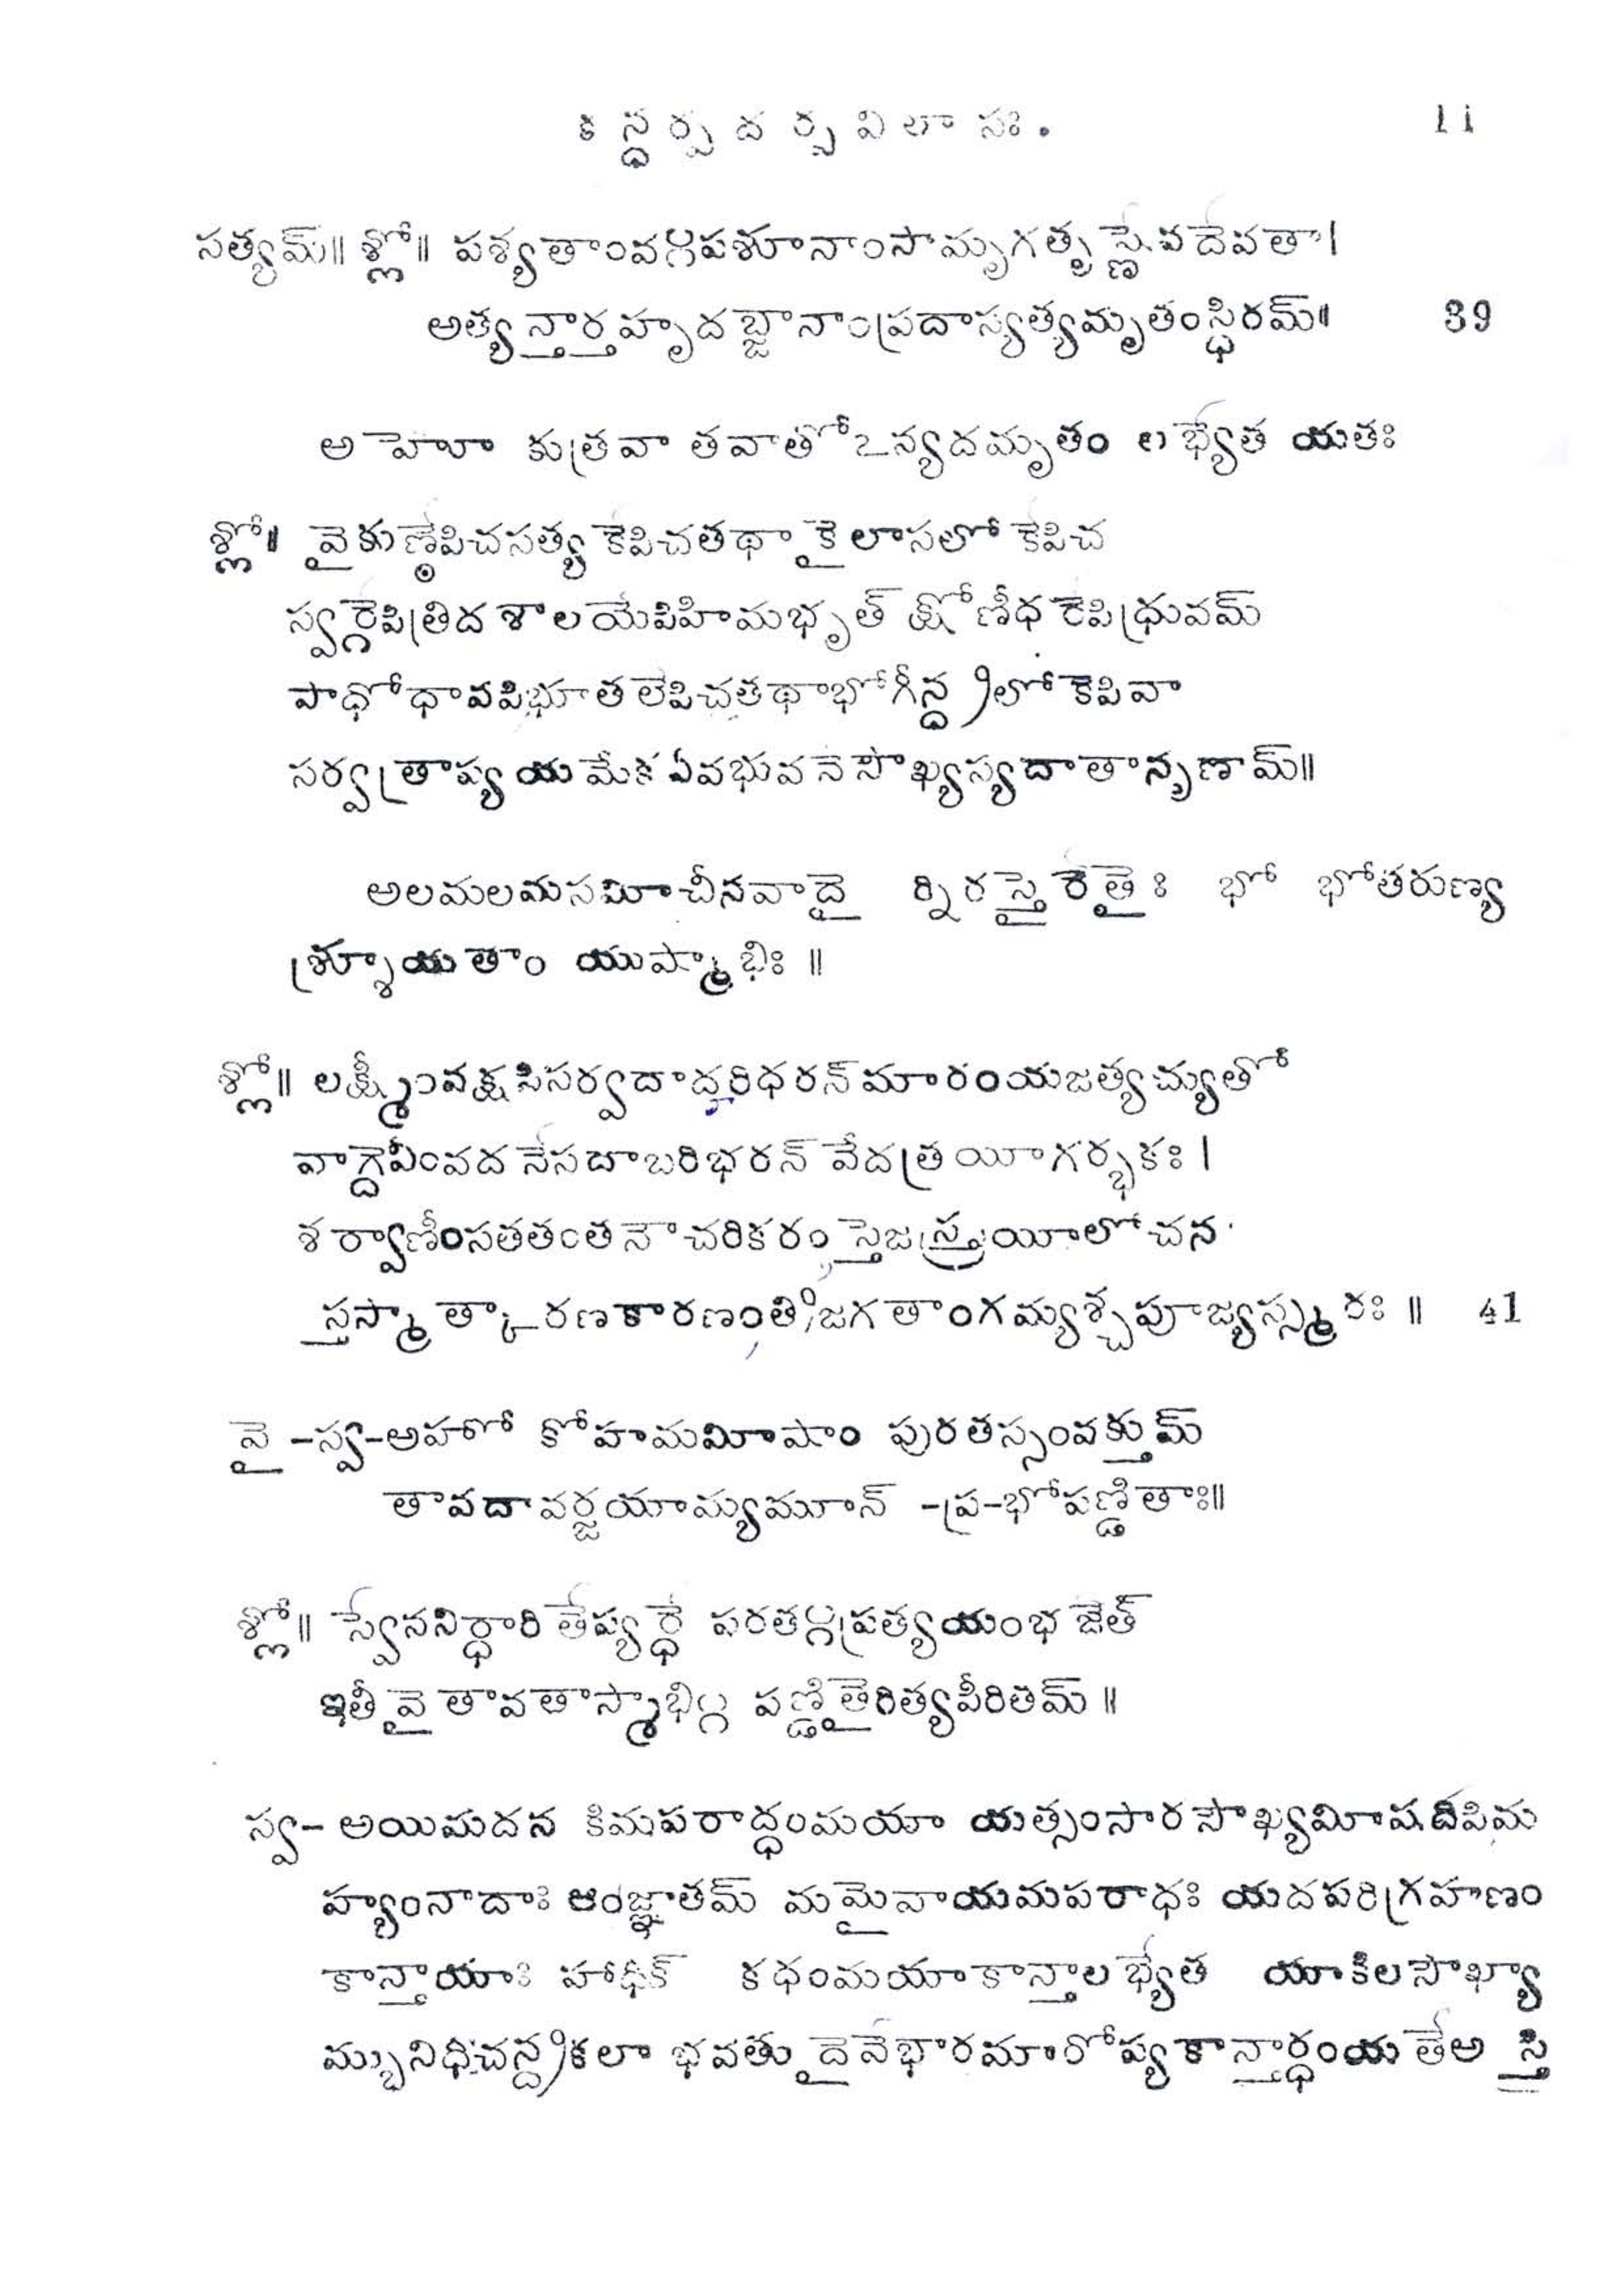 కన్ధర్పదర్పవిలాసః. 11
సత్యమ్॥ శ్లో॥ పశ్యతాంవఃపశూనాంసామృగతృష్ణేవదేవతా।
అత్యన్తార్తహృదబ్జానాంప్రదాస్యత్యమృతంస్థిరమ్॥ 39
అహో కుత్రవా తవాతోఽన్యదమృతం లభ్యేత యతః
శ్లో॥ వైకుణ్ఠేపిచసత్యకేపిచతథాకైలాసలోకేపిచ
స్వర్గేపిత్రిదశాలయేపిహిమభృత్ క్షోణీధరేపిధ్రువమ్
పాధోధావపిభూతలేపిచతథాభోగీన్ద్రలోకేపివా
సర్వత్రాప్యయమేకఏవభువనేసౌఖ్యస్యదాతానృణామ్॥
అలమలమసమీచీనవాదై ర్నిరస్తైరేతైః భో భోతరుణ్య
శ్శ్రూయతాం యుష్మాభిః॥
శ్లో॥ లక్ష్మీంవక్షసిసర్వదాద్దరిధరన్ మారంయజత్యచ్యుతో
వాగ్దేవీంవదనేసదాబరిభరన్ వేదత్రయీగర్భకః।
శర్వాణీంసతతంతనౌచరికరంస్తేజస్త్రయీలోచన
స్తస్మాత్కారణకారణంత్రిజగతాంగమ్యశ్చపూజ్యస్స్మరః॥ 41
వై-స్వ-అహో కోహమమీషాం పురతస్సంవక్తుమ్
తావదావర్జయామ్యమూన్ -ప్ర-భోపణ్డితాః॥
శ్లో॥ స్వేననిర్ధారితేప్యర్ధే పరతఃప్రత్యయంభజేత్
ఇతీవైతావతాస్మాభిః పణ్డితైరిత్యపీరితమ్॥
స్వ- అయిమదన కిమపరాద్ధంమయా యత్సంసారసౌఖ్యమీషదపిమ
హ్యంనాదాః ఆంజ్ఞాతమ్ మమైవాయమపరాధః యదపరిగ్రహణం
కాన్తాయాః హాధిక్ కధంమయాకాన్తాలభ్యేత యాకిలసౌఖ్యా
మ్బునిధిచన్ద్రికలా భవతు దైవేభారమారోప్యకాన్తార్ధంయతేఅస్తి